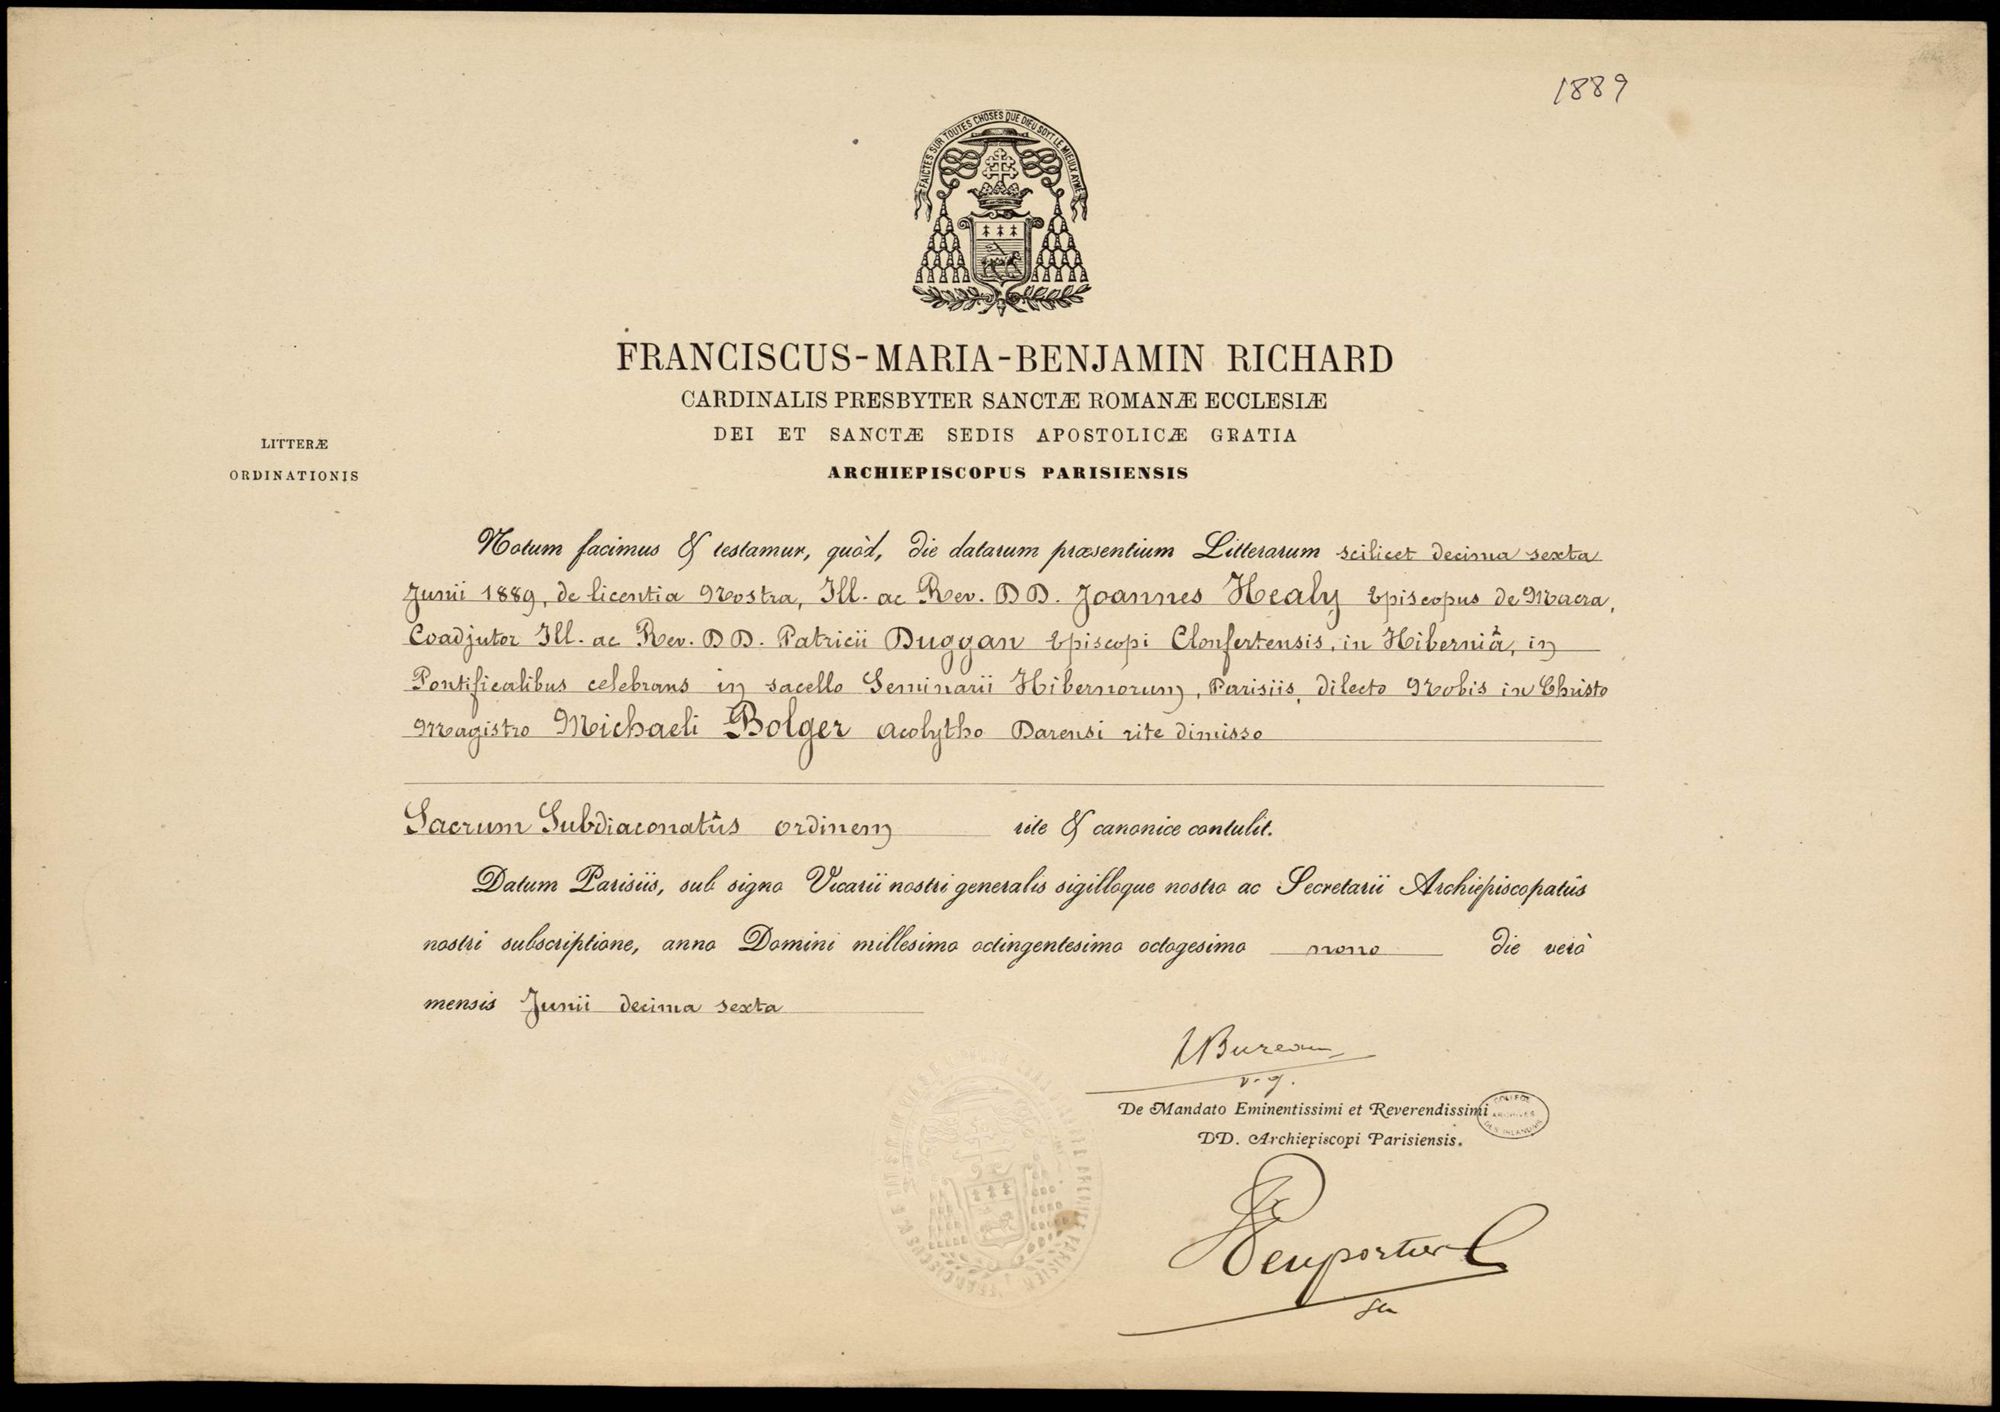 1889
FAICTES SUR TOUTES CHOSES QUE DIEU SOYT LE MIEULX AYMÉ
FRANCISCUS-MARIA-BENJAMIN RICHARD
CARDINALIS PRESBYTER SANCTÆ ROMANÆ ECCLESIÆ
DEI ET SANCTÆ SEDIS APOSTOLICÆ GRATIA
ARCHIEPISCOPUS PARISIENSIS
LITTERÆ
ORDINATIONIS
Notum facimus & testamur, quòd, die datarum præsentium Litterarum scilicet decima sexta
Junii 1889, de licentia Nostra, Ill. ac Rev. DD. Joannes Healy Episcopus de Macra,
Coadjutor Ill. ac Rev. DD. Patricii Duggan Episcopi Clonfertensis, in Hiberniâ, in
Pontificalibus celebrans in sacello Seminarii Hibernorum, Parisiis, dilecto Nobis in Christo
Magistro Michaeli Bolger acolytho Darensi rite dimisso
Sacrum Subdiaconatûs ordinem rite & canonice contulit.
Datum Parisiis, sub signo Vicarii nostri generalis sigilloque nostro ac Secretarii Archiepiscopatûs
nostri subscriptione, anno Domini millesimo octingentesimo octogesimo nono die verò
mensis Junii decima sexta
Bureau
v. g.
De Mandato Eminentissimi et Reverendissimi
DD. Archiepiscopi Parisiensis.
COLLEGE
ARCHIVES
DES IRLANDAIS